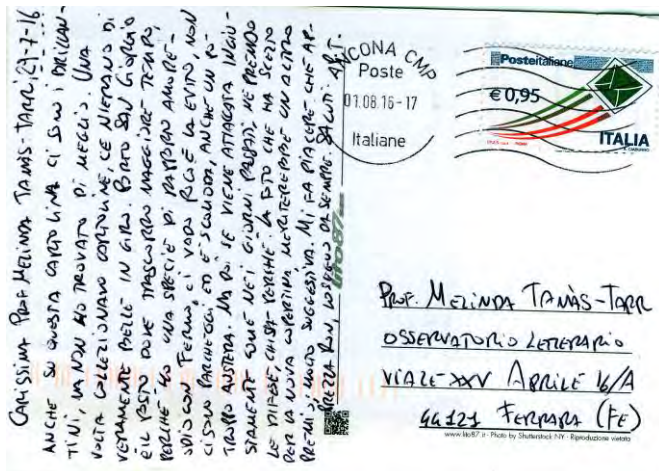 Carissima Prof. Melinda Tamàs-Tarr, 29-7-16
Anche su questa cartolina ci sono i brillan-
tini, ma non ho trovato di meglio. Una
volta collezionavo cartoline, ce n'erano di
veramente belle in giro. Porto San Giorgio
è il posto dove trascorro maggiore tempo,
perché ho una specie di rapporto amore-
odio con Fermo, ci vado poco e la evito, non
ci sono parcheggi ed è scomoda, anche un po'
troppo austera. Ma poi se viene attaccata ingiu-
stamente come nei giorni passati, ne prendo
le difese, chissà perché. La foto che ha scelto
per la nuova copertina meriterebbe un altro
premio, molto suggestiva. Mi fa piacere che ap-
prezza Ron, lo seguo da sempre. Saluti.
lito87
ANCONA CMP
Poste
01.08.16-17
Italiane
Posteitaliane
€ 0,95
ITALIA
Prof. Melinda Tamàs-Tarr
Osservatorio Letterario
Viale XXV Aprile 16/A
44121 Ferrara (FE)
www.lito87.it - Photo by Shutterstock NY - Riproduzione vietata